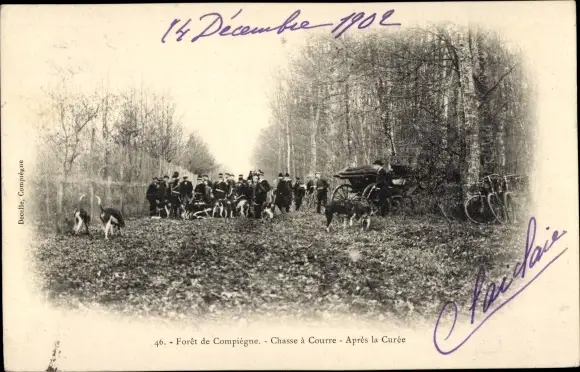 14 Décembre 1902
Decelle, Compiègne
46. - Forêt de Compiègne. - Chasse à Courre - Après la Curée